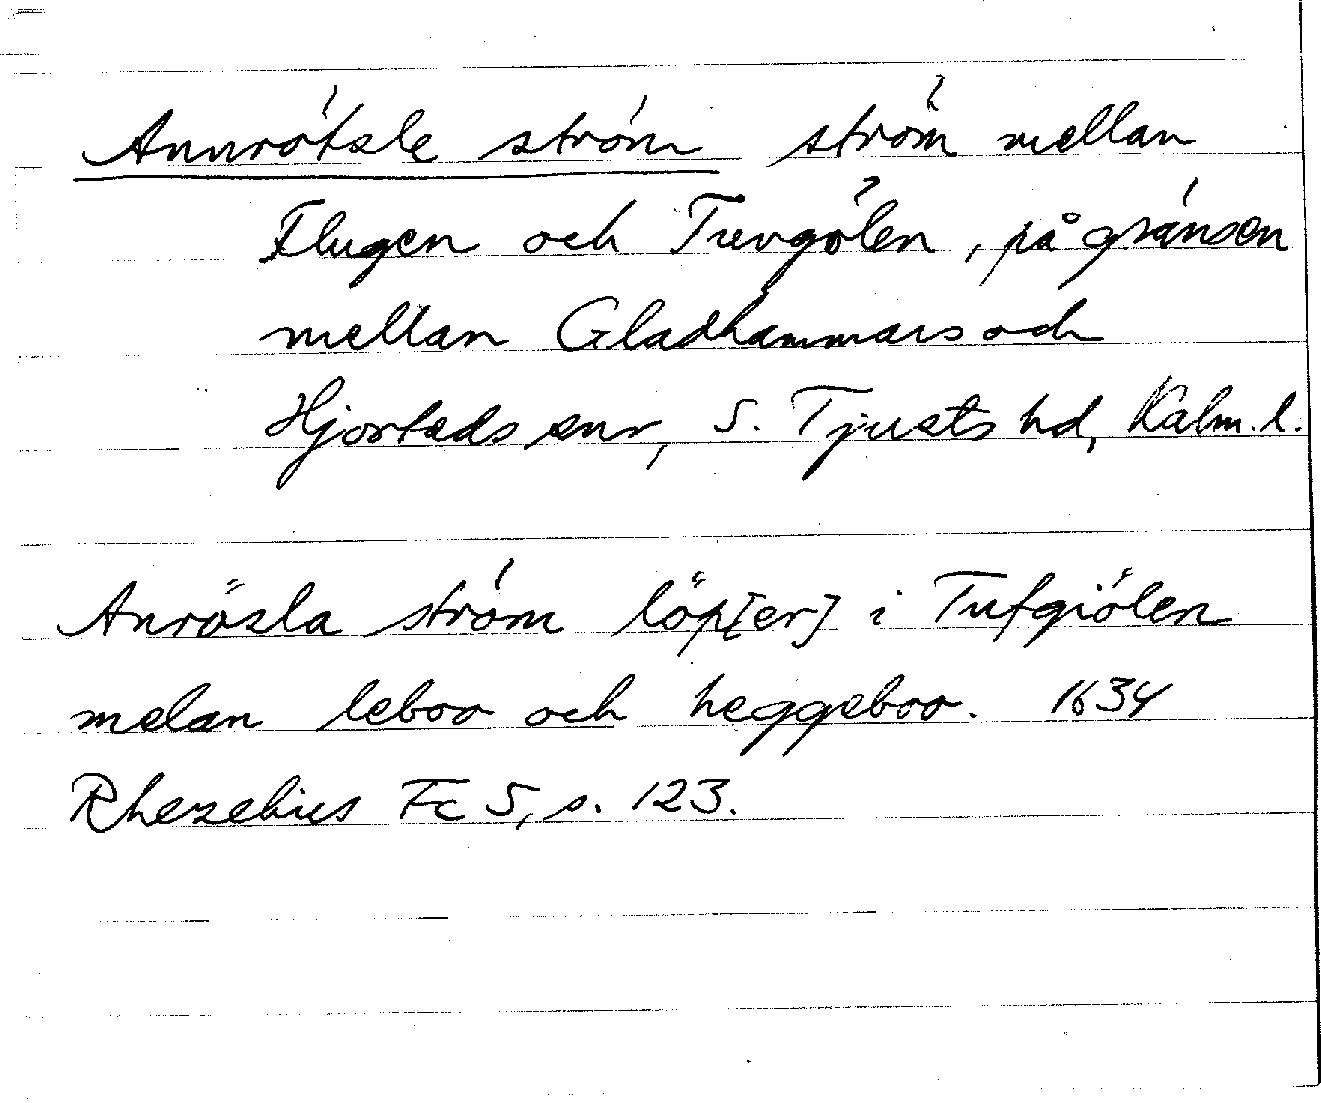 Annrötsle ström ström mellan
Flugen och Tuvgölen, på gränsen
mellan Gladhammars och
Hjorteds snr, S. Tjusts hd, Kalm. l.
Anrösla ström löp[er] i Tufgiölen
melan leboo och heggeboo. 1634
Rhezelius Fc 5, s. 123.